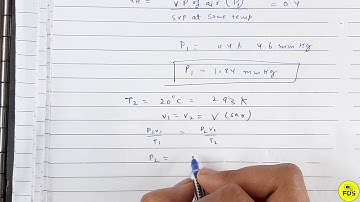 V.P of air (P₁) = 0.4
SVP at same temp
P₁ = 0.4 x 4.6 mm Hg
P₁ = 1.84 mm Hg
T₂ = 20°C = 293 K
V₁ = V₂ = V (say)
P₁V₁/T₁ = P₂V₂/T₂
P₂ =
FDS